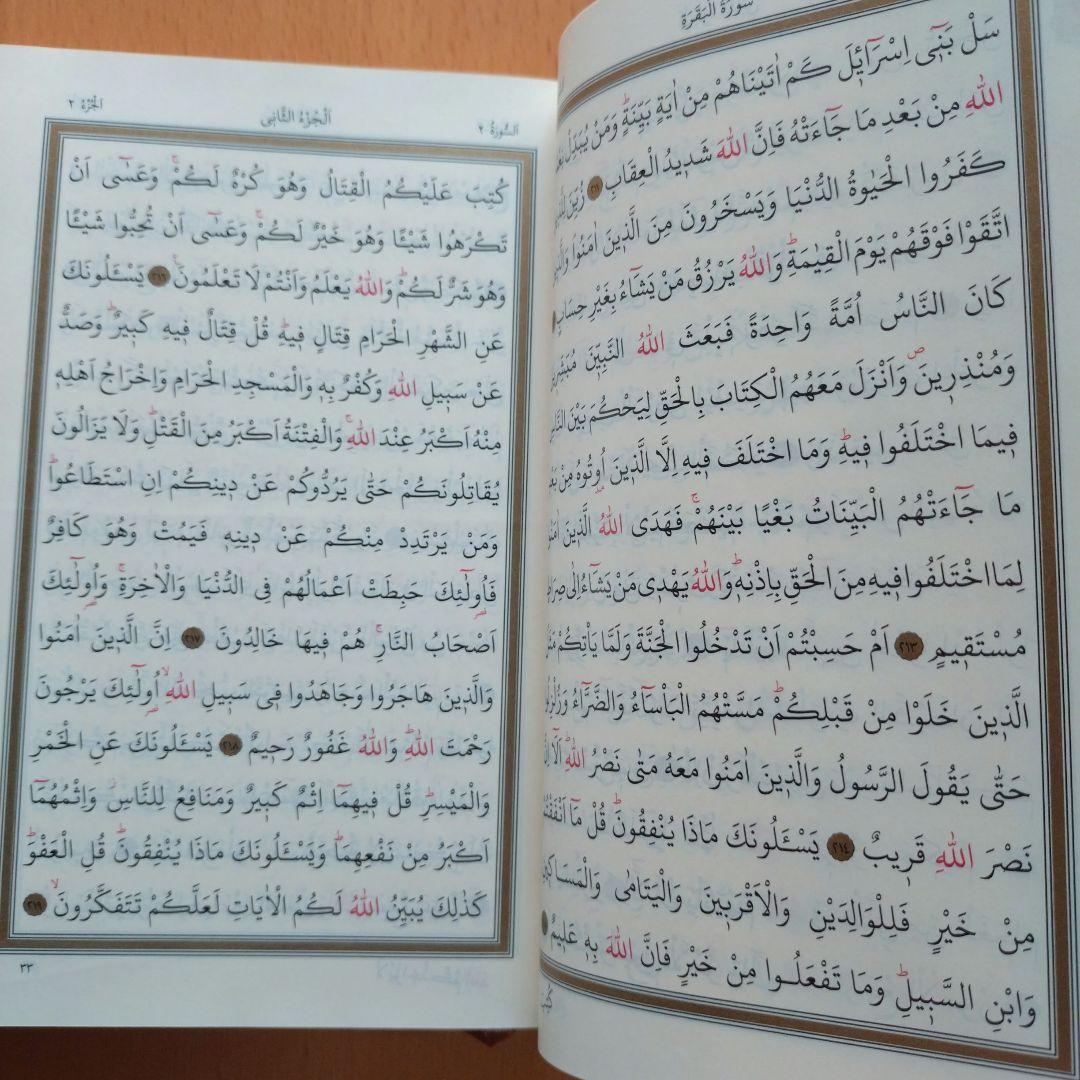 سُورَةُ الْبَقَرَةِ
سَلْ بَنٖٓي اِسْرَٓائٖلَ كَمْ اٰتَيْنَاهُمْ مِنْ اٰيَةٍ بَيِّنَةٍؕ وَمَنْ يُبَدِّلْ
اللّٰهِ مِنْ بَعْدِ مَا جَٓاءَتْهُ فَاِنَّ اللّٰهَ شَدٖيدُ الْعِقَابِ ﴿٢١١﴾ زُيِّنَ
كَفَرُوا الْحَيٰوةُ الدُّنْيَا وَيَسْخَرُونَ مِنَ الَّذٖينَ اٰمَنُواۘ
اتَّقَوْا فَوْقَهُمْ يَوْمَ الْقِيٰمَةِؕ وَاللّٰهُ يَرْزُقُ مَنْ يَشَٓاءُ بِغَيْرِ حِسَابٍ
كَانَ النَّاسُ اُمَّةً وَاحِدَةً فَبَعَثَ اللّٰهُ النَّبِيّٖنَ
وَمُنْذِرٖينَࣕ وَاَنْزَلَ مَعَهُمُ الْكِتَابَ بِالْحَقِّ لِيَحْكُمَ بَيْنَ
فٖيمَا اخْتَلَفُوا فٖيهِؕ وَمَا اخْتَلَفَ فٖيهِ اِلَّا الَّذٖينَ اُوتُوهُ مِنْ
مَا جَٓاءَتْهُمُ الْبَيِّنَاتُ بَغْيًا بَيْنَهُمْۚ فَهَدَى اللّٰهُ الَّذٖينَ
لِمَا اخْتَلَفُوا فٖيهِ مِنَ الْحَقِّ بِاِذْنِهٖؕ وَاللّٰهُ يَهْدٖي مَنْ يَشَٓاءُ اِلٰى
مُسْتَقٖيمٍ ﴿٢١٣﴾ اَمْ حَسِبْتُمْ اَنْ تَدْخُلُوا الْجَنَّةَ وَلَمَّا يَأْتِكُمْ
الَّذٖينَ خَلَوْا مِنْ قَبْلِكُمْؕ مَسَّتْهُمُ الْبَأْسَٓاءُ وَالضَّرَّٓاءُ
حَتّٰى يَقُولَ الرَّسُولُ وَالَّذٖينَ اٰمَنُوا مَعَهُ مَتٰى نَصْرُ اللّٰهِؕ اَلَٓا
نَصْرَ اللّٰهِ قَرٖيبٌ ﴿٢١٤﴾ يَسْـَٔلُونَكَ مَاذَا يُنْفِقُونَؕ قُلْ مَٓا
مِنْ خَيْرٍ فَلِلْوَالِدَيْنِ وَالْاَقْرَبٖينَ وَالْيَتَامٰى
وَابْنِ السَّبٖيلِؕ وَمَا تَفْعَلُوا مِنْ خَيْرٍ فَاِنَّ اللّٰهَ بِهٖ عَلٖيمٌ
اَلسُّورَةُ ٢
اَلْجُزْءُ الثَّانٖي
اَلْجُزْءُ ٢
كُتِبَ عَلَيْكُمُ الْقِتَالُ وَهُوَ كُرْهٌ لَكُمْۚ وَعَسٰٓى اَنْ
تَكْرَهُوا شَيْـًٔا وَهُوَ خَيْرٌ لَكُمْۚ وَعَسٰٓى اَنْ تُحِبُّوا شَيْـًٔا
وَهُوَ شَرٌّ لَكُمْؕ وَاللّٰهُ يَعْلَمُ وَاَنْتُمْ لَا تَعْلَمُونَۚ ﴿٢١٦﴾ يَسْـَٔلُونَكَ
عَنِ الشَّهْرِ الْحَرَامِ قِتَالٍ فٖيهِؕ قُلْ قِتَالٌ فٖيهِ كَبٖيرٌؕ وَصَدٌّ
عَنْ سَبٖيلِ اللّٰهِ وَكُفْرٌ بِهٖ وَالْمَسْجِدِ الْحَرَامِ وَاِخْرَاجُ اَهْلِهٖ
مِنْهُ اَكْبَرُ عِنْدَ اللّٰهِۚ وَالْفِتْنَةُ اَكْبَرُ مِنَ الْقَتْلِؕ وَلَا يَزَالُونَ
يُقَاتِلُونَكُمْ حَتّٰى يَرُدُّوكُمْ عَنْ دٖينِكُمْ اِنِ اسْتَطَاعُواؕ
وَمَنْ يَرْتَدِدْ مِنْكُمْ عَنْ دٖينِهٖ فَيَمُتْ وَهُوَ كَافِرٌ
فَاُولٰٓئِكَ حَبِطَتْ اَعْمَالُهُمْ فِي الدُّنْيَا وَالْاٰخِرَةِۚ وَاُولٰٓئِكَ
اَصْحَابُ النَّارِۚ هُمْ فٖيهَا خَالِدُونَ ﴿٢١٧﴾ اِنَّ الَّذٖينَ اٰمَنُوا
وَالَّذٖينَ هَاجَرُوا وَجَاهَدُوا فٖي سَبٖيلِ اللّٰهِۙ اُولٰٓئِكَ يَرْجُونَ
رَحْمَتَ اللّٰهِؕ وَاللّٰهُ غَفُورٌ رَحٖيمٌ ﴿٢١٨﴾ يَسْـَٔلُونَكَ عَنِ الْخَمْرِ
وَالْمَيْسِرِؕ قُلْ فٖيهِمَٓا اِثْمٌ كَبٖيرٌ وَمَنَافِعُ لِلنَّاسِؗ وَاِثْمُهُمَٓا
اَكْبَرُ مِنْ نَفْعِهِمَاؕ وَيَسْـَٔلُونَكَ مَاذَا يُنْفِقُونَؕ قُلِ الْعَفْوَؕ
كَذٰلِكَ يُبَيِّنُ اللّٰهُ لَكُمُ الْاٰيَاتِ لَعَلَّكُمْ تَتَفَكَّرُونَۙ ﴿٢١٩﴾
٣٣